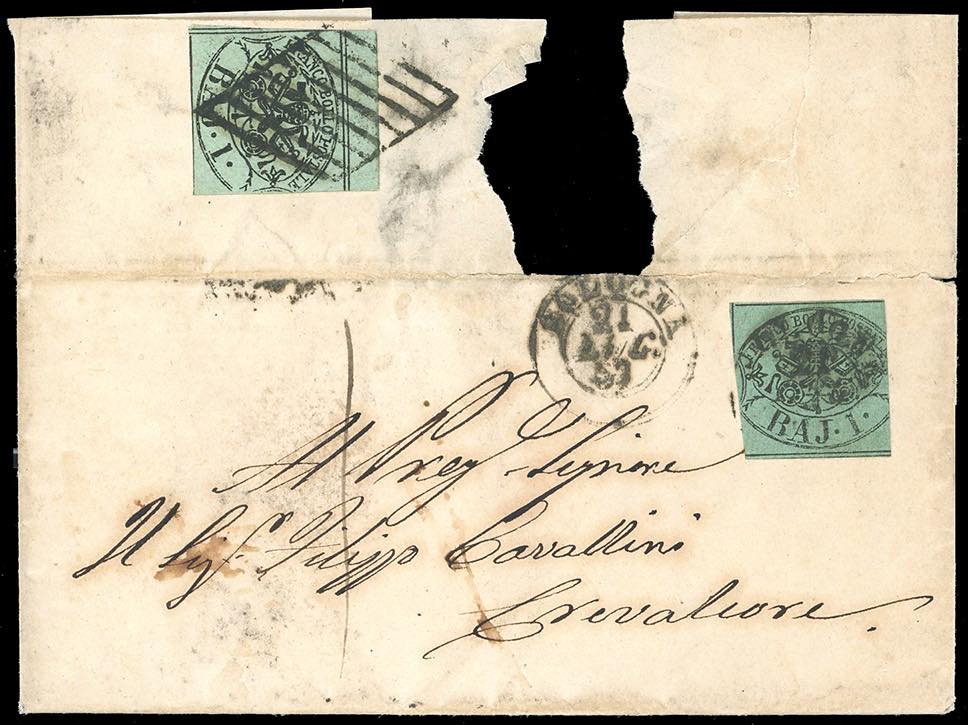 FRANCO BOLLO POSTALE
BAJ. 1.
BOLOGNA
21
LUG
59
BAJ. 1.
Al Preg. Signore
Il Sig. Filippo Cavallini
Crevalcore.